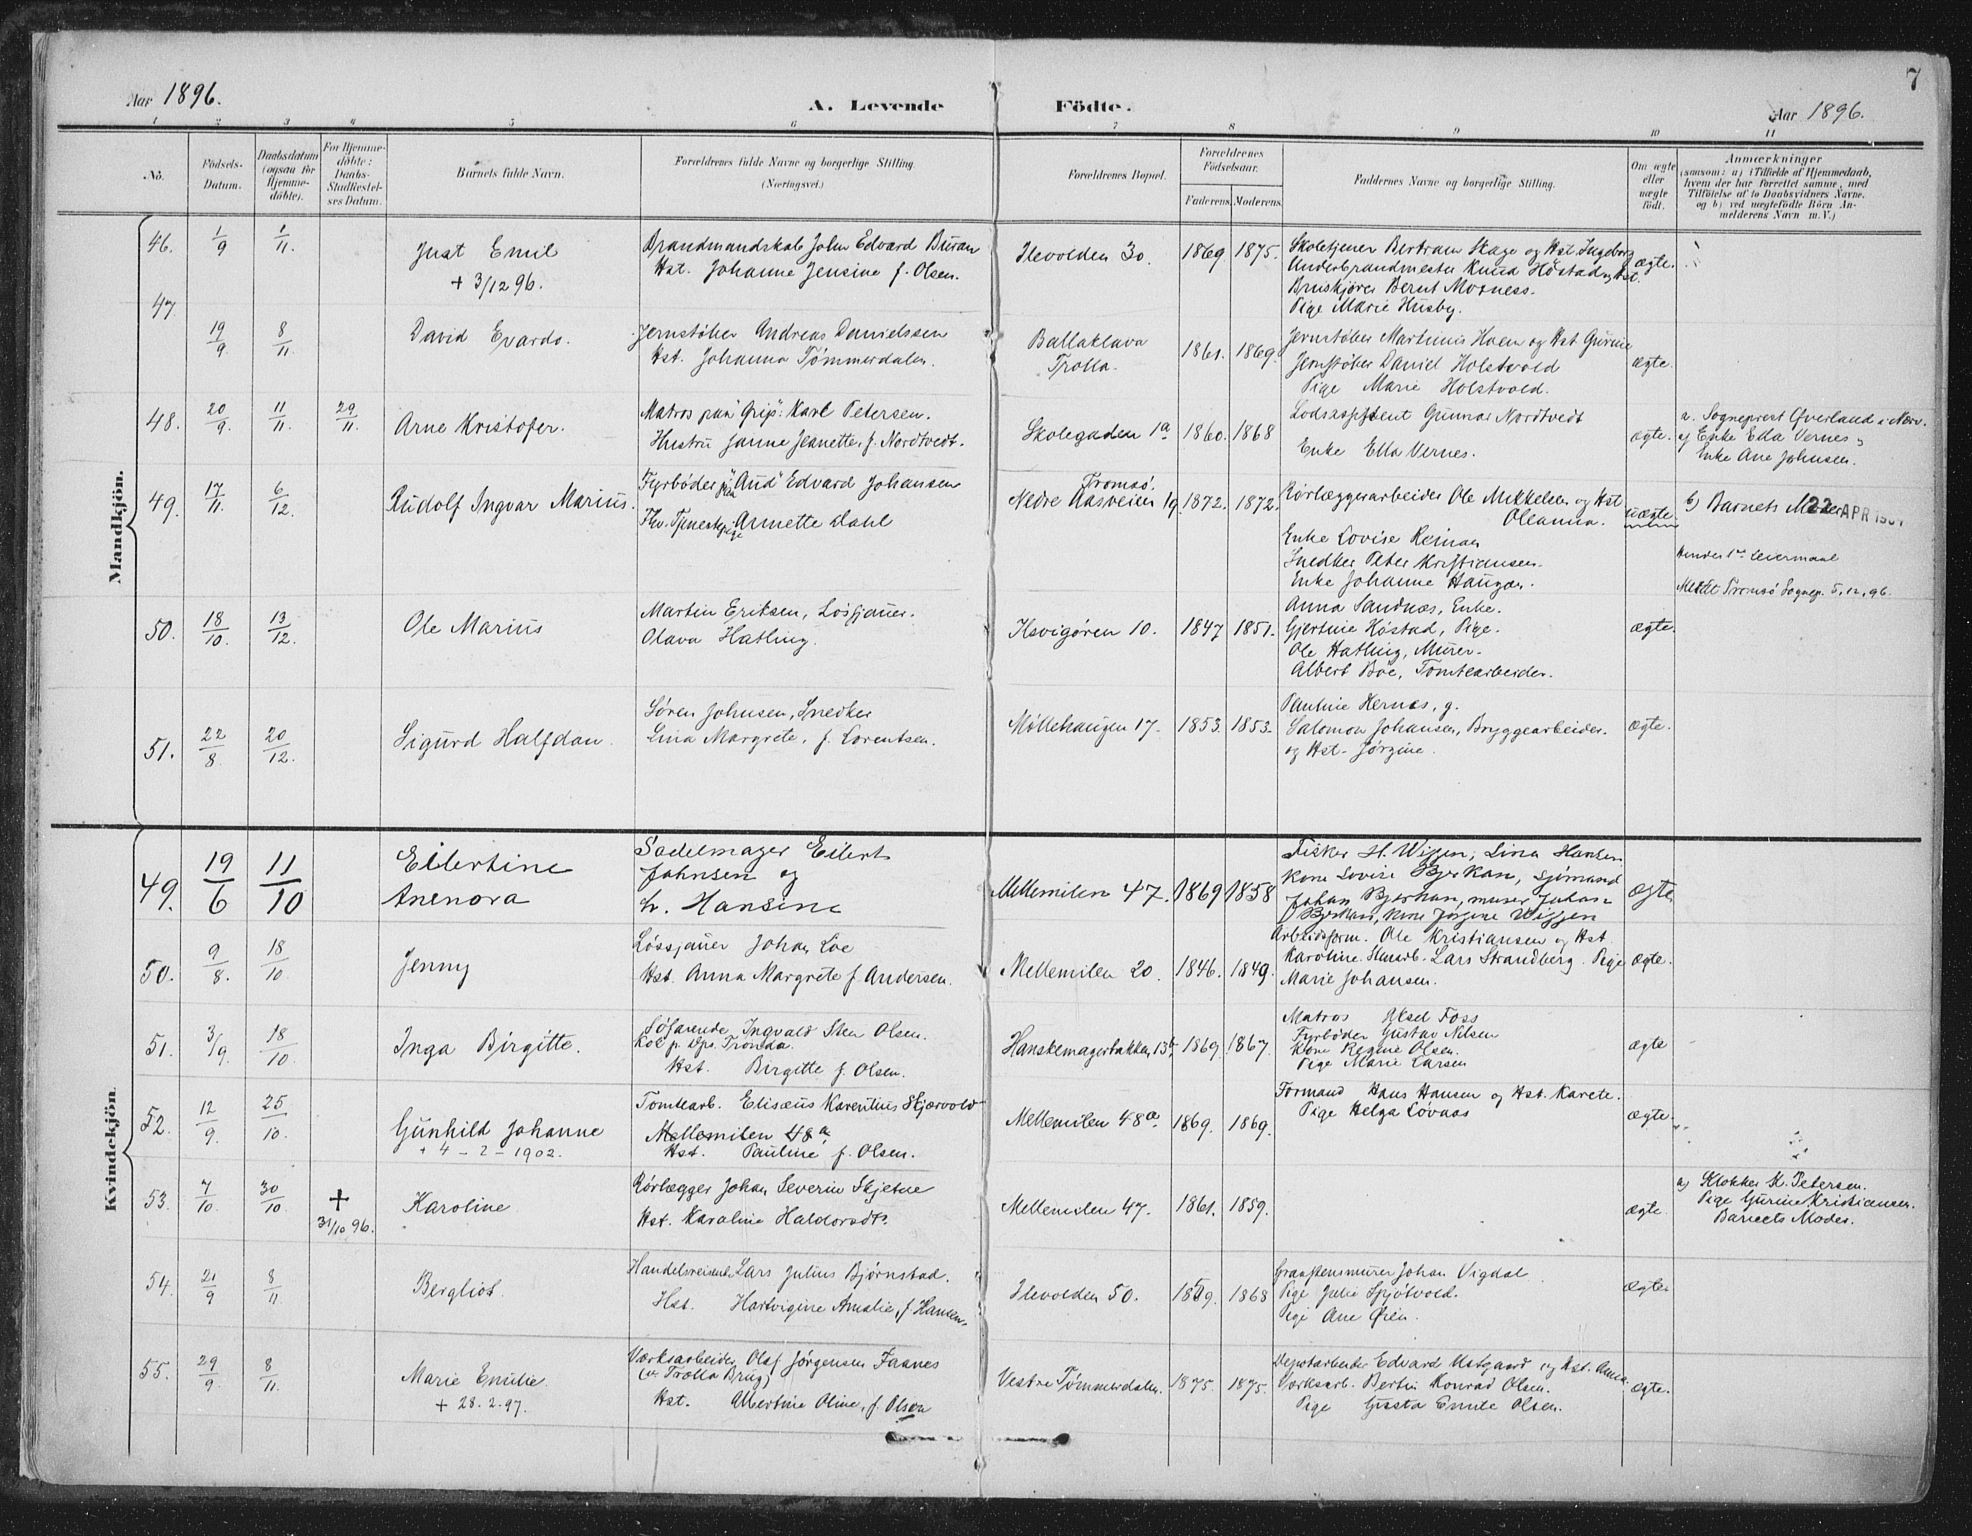 7
Aar 1896.
A. Levende Födte.
Aar 1896.
1 2 3 4 5 6 7 8 9 10 11
No.
Födsels-Datum.
Daabsdatum (ogsaa for Hjemme-döbte).
For Hjemme-döbte: Daabs-Stadfæstel-ses Datum.
Barnets fulde Navn.
Forældrenes fulde Navne og borgerlige Stilling. (Næringsvei.)
Forældrenes Bopæl.
Forældrenes Födselsaar.
Faderens. Moderens.
Faddernes Navne og borgerlige Stilling.
Om ægte eller uægte födt.
Anmærkninger
(saasom: a) i Tilfælde af Hjemmedaab,
hvem der har forrettet samme, med
Tilföielse af to Daabsvidners Navne,
og b) ved uægtefödte Börn An-
melderens Navn m. V.)
Mandkjön.
46. 1/9 1/11 Just Emil
+ 3/12 96.
Brandmandskab John Edvard Buran
Hst. Johanne Jensine f. Olsen.
Ilevolden 30. 1869. 1875.
Skoletjener Bertram Skage og Hst. Ingeborg
Underbrandmester Knud Höstad og Hst.
Bruskjører Bernt Moxness.
Pige Marie Husby.
ægte.
47 19/9 8/11 David Evardo.
Jernstøber Andreas Danielssen
Hst. Johanna Tømmerdalen.
Ballaklava
Trolla.
1861. 1869.
Jernstøber Martinus Hoen og Hst Gurine
Jernstøber Daniel Holstvold
Pige Marie Holstvold.
ægte.
48. 20/9. 11/11. 29/11. Arne Kristofer.
Matros paa "Grip": Karl Petersen.
Hustru Janna Jeanette, f. Nordtvedt.
Skolegaden 1a 1860. 1868
Lodsassistent Gunnar Nordtvedt
Enke Ella Vernes.
ægte.
a. Sogneprest Øverland i Nærv.
Enke Ella Vernes,
Enke Ane Johnsen.
49. 17/11. 6/12. Rudolf Ingvar Marius.
Fyrbøder paa "Aud" Edvard Johansen Tromsö.
Fhv. Tjenestepige Annette Dahl
Nedre Aasveien 19 1872. 1872.
Rørlæggerarbeider Ole Mikkelsen og Hst
Oleanna.
Enke Lovise Reinan
Snedker Peter Kristiansen.
Enke Johanne Haugan.
uægte
b) Barnets Moder
22 APR 19
Hendes 1ste Leiermaal
Meldt Tromsö Sognep. 5,12,96.
50. 18/10. 13/12. Ole Marius
Martin Eriksen, Losjauer.
Olava Hatling.
Ilsvigören 10. 1847 1851.
Anna Sandnæs, Enke.
Gjertine Høstad, Pige.
Ole Hatling, Murer.
Albert Böe, Tomtearbeider.
ægte.
51. 22/8 20/12. Sigurd Halfdan.
Søren Johnsen, Snedker
Lina Margrete, f. Lorentsen.
Møllehaugen 17. 1853. 1853.
Pauline Hernæs, g.
Salomon Johansen, Bryggearbeider.
og Hst. Jørgine.
ægte.
Kvindekjön.
49. 19/6 11/10 Eilertine
Anenora
Sadelmager Eilert
Johnsen og
h. Hansine
Mellemilen 47. 1869 1858
Fisker H. Wiggen, Lina Hansen
Kone Lovise Bjerkan, Sjömand
Johan Bjerkan, murer Johan
Bjerkan, Kone Jörgine Wiggen
ægte
50. 9/8. 18/10. Jenny
Løssjauer Johan Löe
Hst. Anna Margrete f. Andersen.
Mellemilen 20. 1846. 1849.
Arbeidsform. Ole Kristiansen og Hst.
Karoline. Husarb. Lars Strandberg. Pige
Marie Johansen.
ægte.
51. 3/9. 18/10. Inga Birgitte.
Søfarende Ingvald Sten Olsen.
Kok p. Dps. Tronda.
Hst. Birgitte f. Olsen.
Hanskemagerbakken 13b, 1869. 1867.
Matros Aksel Foss
Fyrbøder Gustav Nilsen
Kone Regine Olsen.
Pige Marie Larsen
ægte
52. 12/9. 25/10. Gunhild Johanne
+ 4 - 2 - 1902.
Tomtearb. Elisæus Karentius Skjærvold
Mellemilen 48a
Hst. Pauline f. Olsen.
Mellemilen 48a. 1869. 1869.
Formand Hans Hansen og Hst. Karete.
Pige Helga Løvaas
ægte.
53. 7/10 30/10 + 31/10 96. Karoline
Rørlægger Johan Severin Skjetne
Hst. Karoline Haldorsdtr.
Mellemilen 47. 1861. 1859.
ægte.
a) Klokker K. Petersen.
Pige Gurine Kristiansen.
Barnets Moder.
54. 21/9 8/11. Bergliot.
Handelsreisende Lars Julius Björnstad.
Hst. Hartvigine Amalie, f. Hansen.
Ilevolden 50. 1869. 1868
Graastensmurer Johan Vigdal.
Pige Julie Spjötvold.
Pige Ane Øien.
ægte.
55. 29/9 8/11. Marie Emilie.
+ 28.2.97.
Værksarbeider Olaf Jörgensen Faanes
(ver Trolla Brug)
Hst. Albertine Oline, f. Olsen
Vestre Tømmerdalen. 1875. 1875.
Depotarbeider Edvard Ustgaard og Hst. Anna.
Værksarb. Bertin Konrad Olsen.
Pige Gusta Emilie Olsen.
ægte.